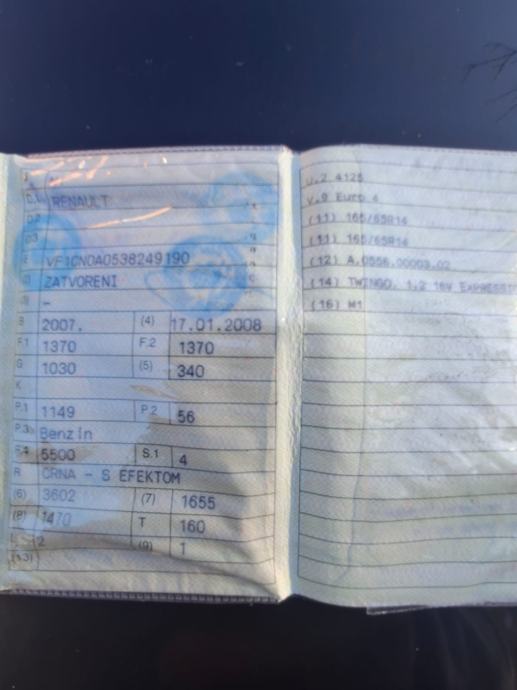 D.1 RENAULT
D.2
D.3
E VF1CN0A0538249190
ZATVORENI
-
B 2007. (4) 17.01.2008
F.1 1370 F.2 1370
G 1030 (5) 340
K
P.1 1149 P.2 56
P.3 Benzin
P.4 5500 S.1 4
R CRNA - S EFEKTOM
(6) 3602 (7) 1655
(8) 1470 T 160
2 (9) 1
(13)
U.2 4125
V.9 Euro 4
(11) 165/65R14
(11) 165/65R14
(12) A.0556.00003.02
(14) TWINGO, 1.2 16V
(16) M1